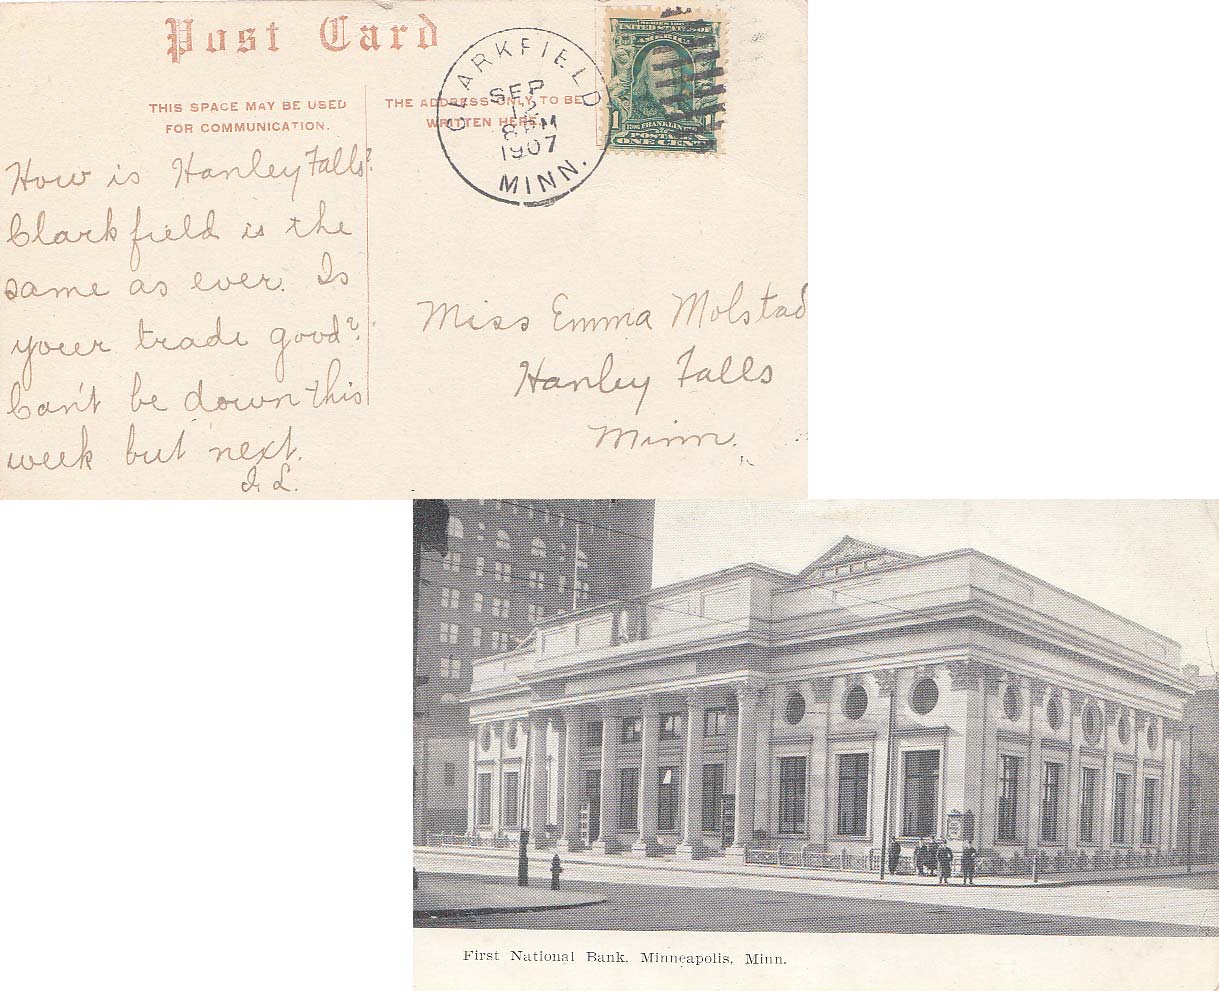 Post Card
THIS SPACE MAY BE USED
FOR COMMUNICATION.
THE ADDRESS ONLY TO BE
WRITTEN HERE.
CLARKFIELD
SEP
12
8 PM
1907
MINN.
UNITED STATES OF
AMERICA
1 FRANKLIN 1
POSTAGE
ONE CENT
How is Hanley Falls?
Clarkfield is the
same as ever. Is
your trade good?
Can't be down this
week but next.
I. L.
Miss Emma Molstad
Hanley Falls
Minn.
First National Bank, Minneapolis, Minn.